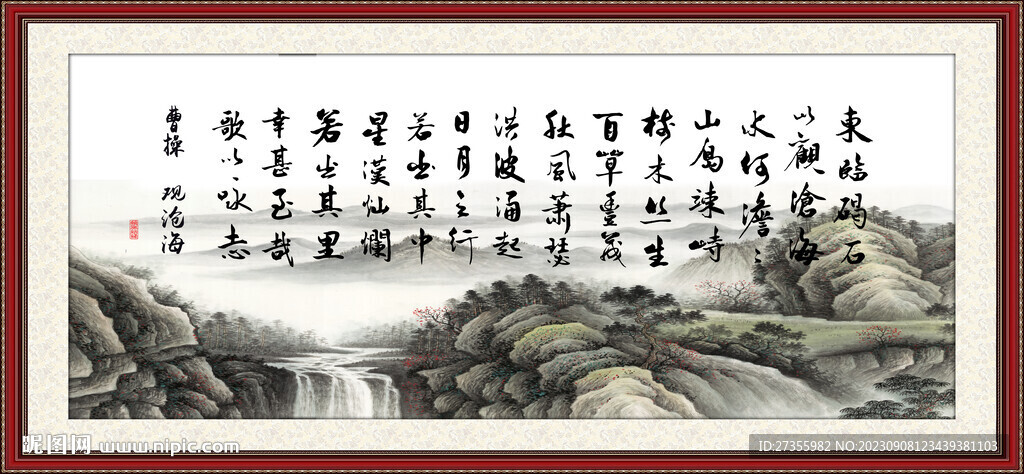 東臨碣石
以觀滄海
水何澹々
山島竦峙
树木丛生
百草豐茂
秋風蕭瑟
洪波涌起
日月之行
若出其中
星漢灿爛
若出其里
幸甚至哉
歌以咏志
曹操 观沧海
昵图网 www.nipic.com
ID:27355982 NO:20230908123439381103